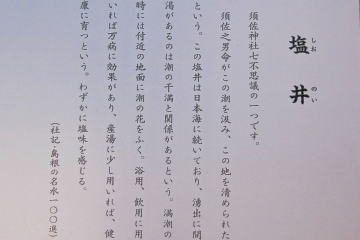 塩井
しおのい
須佐神社七不思議の一つです。
須佐之男命がこの潮を汲み、この地を清められた
という。この塩井は日本海に続いており、湧出に間
渇があるのは潮の干満と関係があるという。満潮の
時には付近の地面に潮の花をふく。浴用、飲用に用
いれば万病に効果があり、産湯に少し用いれば、健
康に育つという。わずかに塩味を感じる。
(社記・島根の名水一〇〇選)